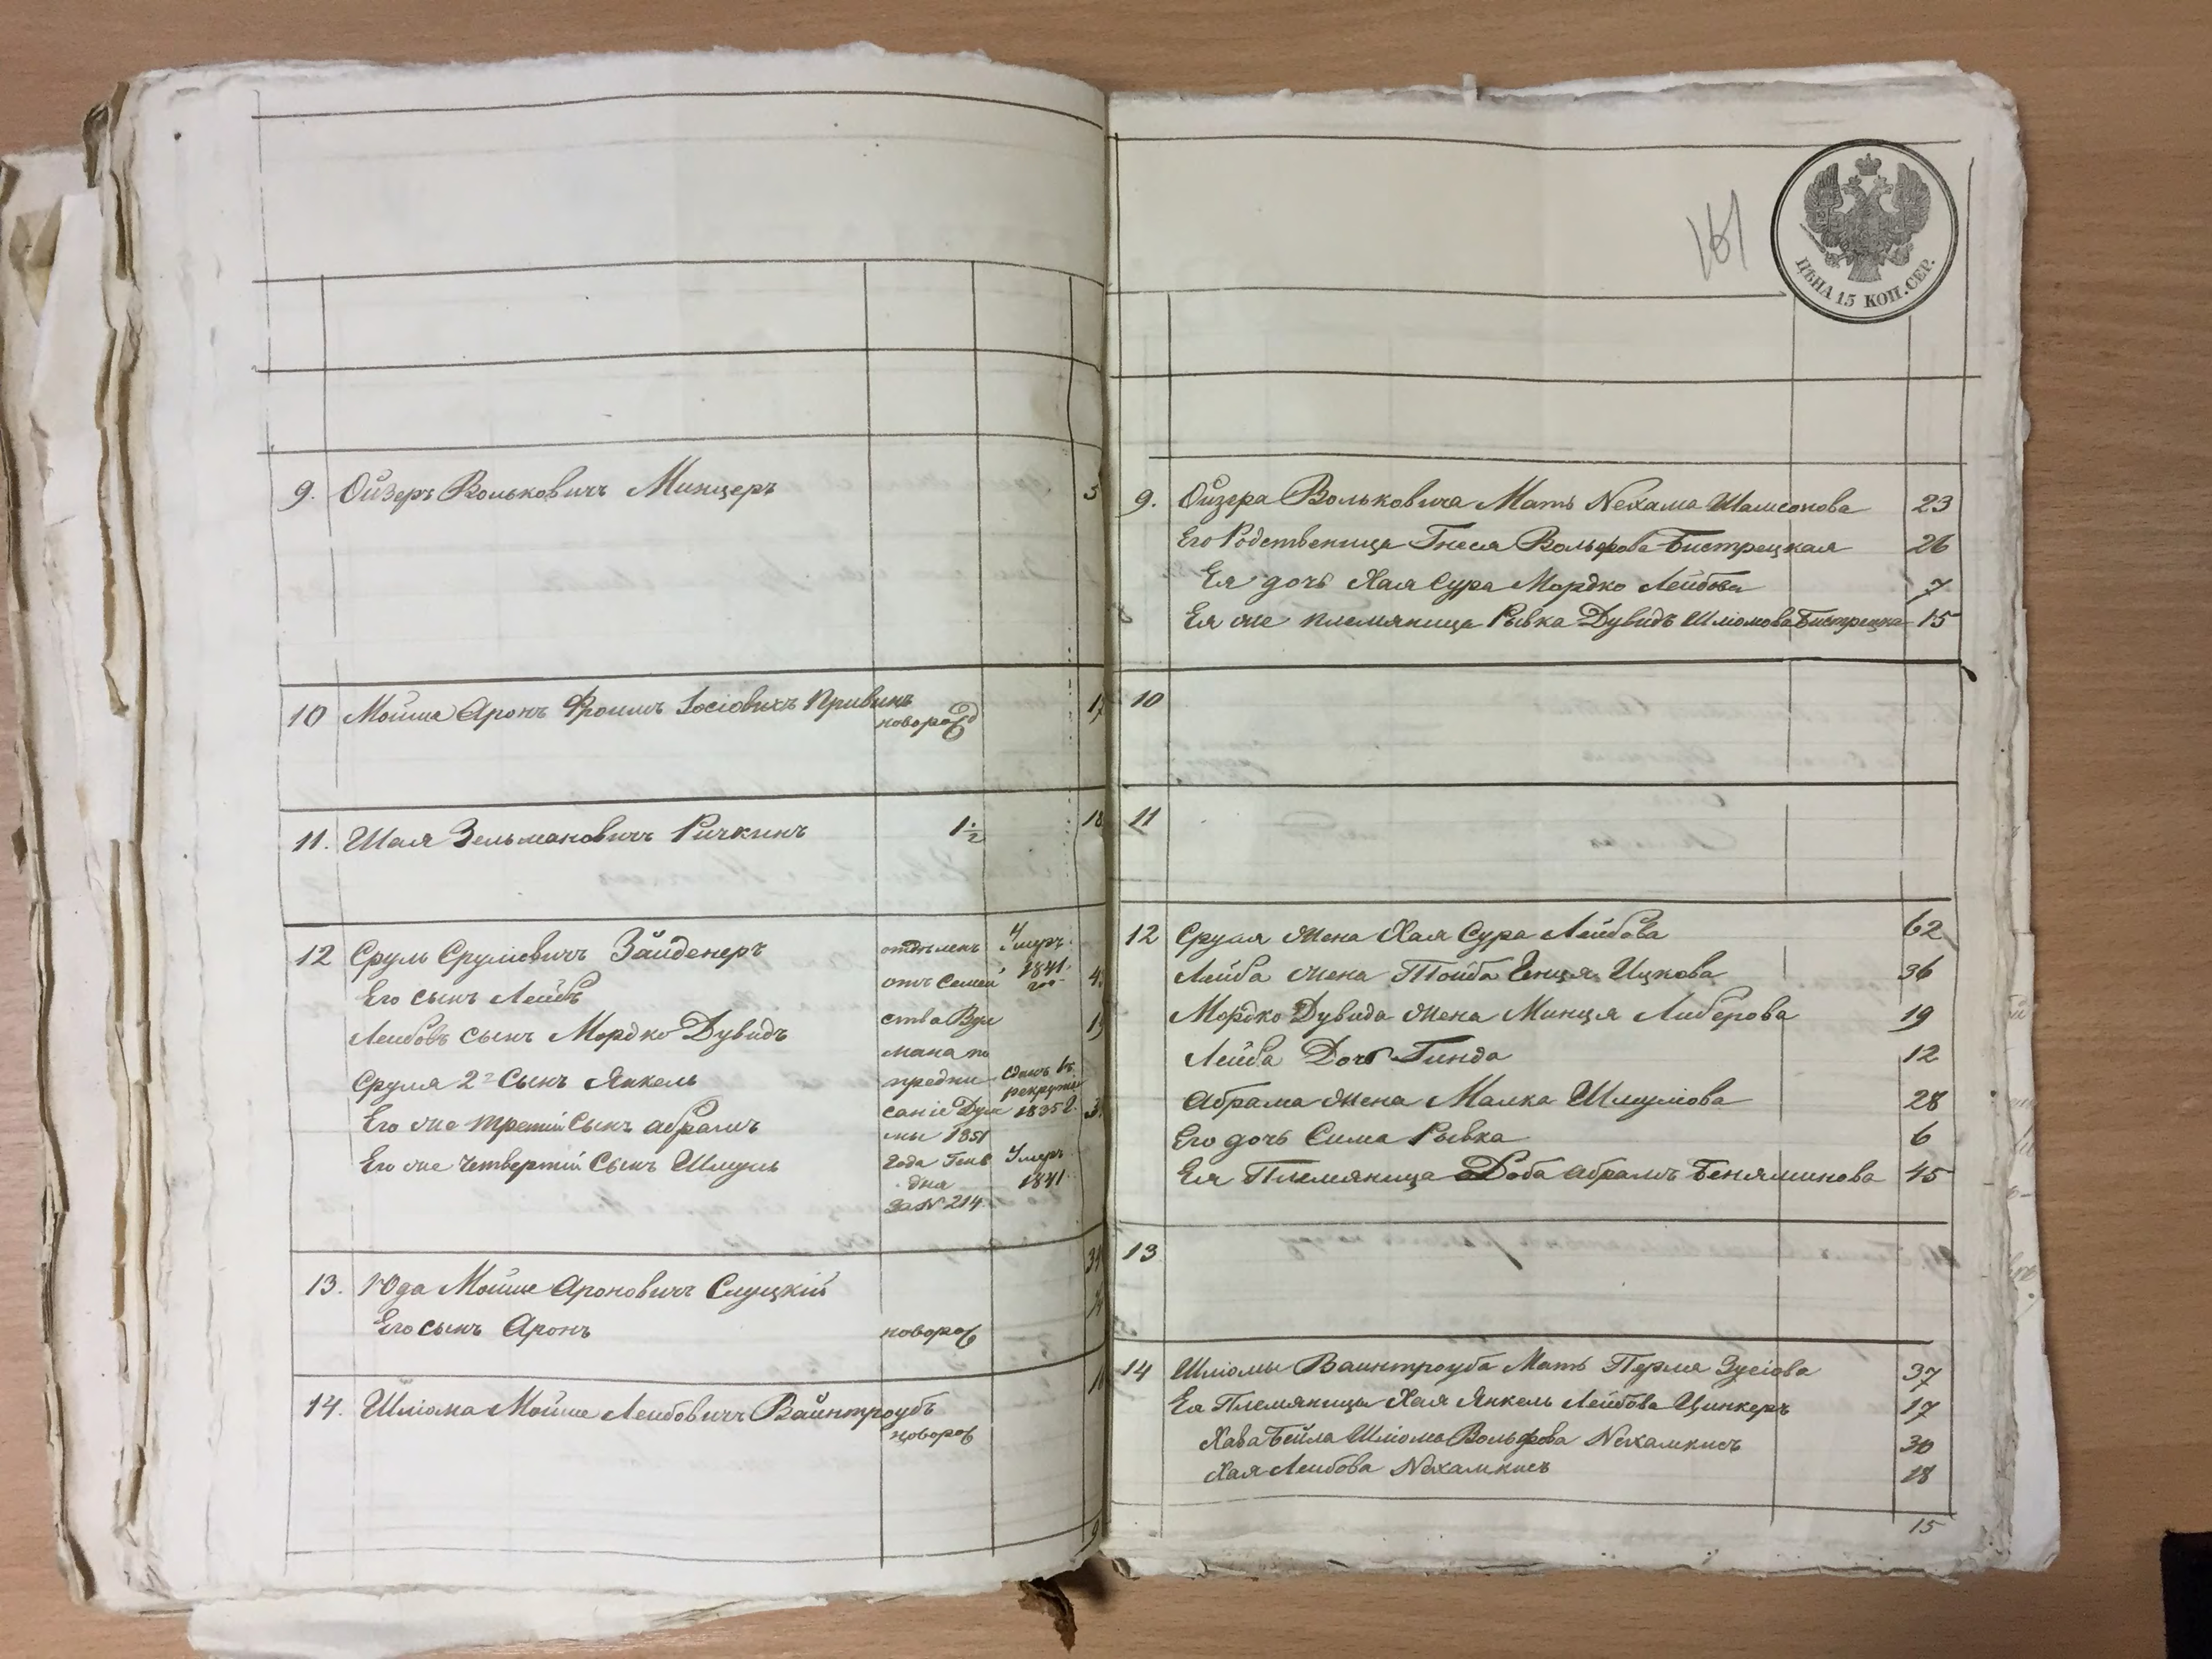 9. Ойзеръ Вольковичъ Минцеръ 5
10 Мойша Аронъ Фроимъ Іосіовичъ Привинъ
новорож
11. Шая Зельмановичъ Ричкинъ 1 1/2 18
12 Сруль Сруліовичъ Зайденеръ отдѣленъ Умеръ
Его сынъ Лейбъ отъ Семей 1841. год
Лейбовъ сынъ Мордко Дувидъ ства
мана по
Сруля 2й Сынъ Янкель предпи Сданъ въ рекруты
Его же третій Сынъ Абрамъ саніе Думы 1835 г.
мы 1851
Его же четвертій Сынъ Шмуль года Генв Умеръ
дня 1841
за № 214
13. Юда Мойше Ароновичъ Слуцкій
Его сынъ Аронъ новорож
14. Шліома Мойше Лейбовичъ Вайнтроубъ
новорож
9
161
ЦѢНА 15 КОП. СЕР.
9. Ойзера Вольковича Мать Нехама Шамсонова 23
Его Родственица Гнеся Вольфова Бистрецкая 26
Ея дочь Хая Сура Мордко Лейбова 7
Ея же племяница Рывка Дувидъ Шліомова Бистрецка 15
10
11
12 Сруля Жена Хая Сура Лейбова 62
Лейба жена Тойба Генця Ицкова 36
Мордко Дувида жена Минця Либерова 19
Лейба Дочь Гинда 12
Абрама Жена Малка Шмуліова 28
Его дочь Сима Рывка 6
Ея Племяница Доба Абрамъ Беняминова 45
13
14 Шліомы Вайнтроуба Мать Перля Зусіова 37
Ея Племяницы Хая Янкель Лейбова Цинкеръ 17
Хава Бейла Шліома Вольфова Нехамкисъ 30
Хая Лейбова Нехамкисъ 18
15